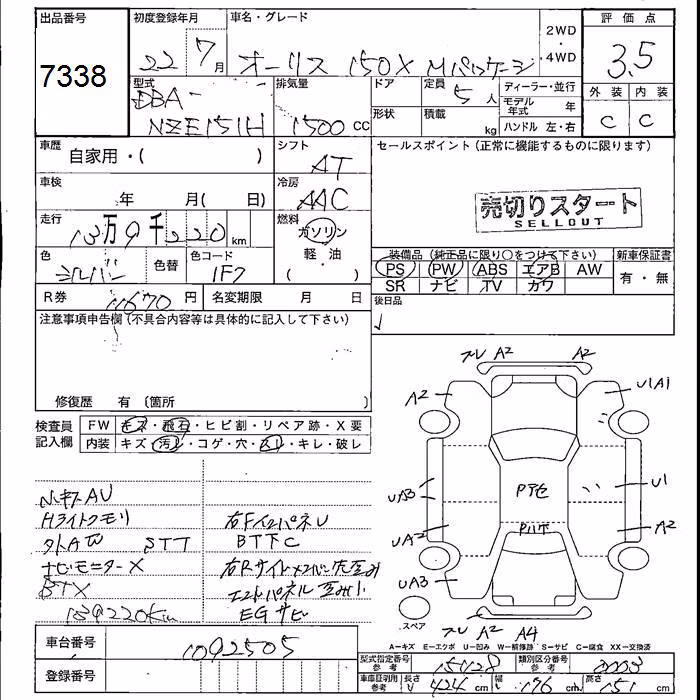 出品番号
7338
初度登録年月
22 7月
車名・グレード
オーリス 150X Mパッケージ
2WD
・
4WD
評価点
3.5
外装 内装
C C
型式
DBA-
NZE151H
排気量
1500 cc
ドア
定員 5人
ディーラー・並行
モデル年式 年
形状
積載 kg
ハンドル 左・右
車歴
自家用・( )
シフト
AT
セールスポイント(正常に機能するものに限ります)
車検
年 月( 日)
冷房
AAC
売切りスタート
SELLOUT
走行
13万9千220km
燃料
ガソリン
軽・油
( )
色
シルバー
色替
色コード
1F7
装備品(純正品に限り○をつけて下さい)
新車保証書
PS PW ABS エアB AW
有・無
SR ナビ TV カワ
R券 11670円
名変期限 月 日
後日品
注意事項申告欄(不具合内容等は具体的に記入して下さい)
修復歴 有〔箇所 〕
検査員
記入欄
FW キズ・飛石・ヒビ割・リペア跡・X要
内装 キズ・汚れ・コゲ・穴・スレ・キレ・破レ
Hライトクモリ
STT
BTX
139220km
BT下C
EGサビ
A2 A2
A2 UA1
UA3 U1
UA2 A2
UA3
A2 A4
スペア
A−キズ E−エクボ U−凹み W−補修跡 S−サビ C−腐食 XX−交換済
車台番号
1092505
登録番号
型式指定番号 参考 15428
類別区分番号 参考 0003
車庫証明用 参考 長さ 424 cm 幅 176 cm 高さ 151 cm